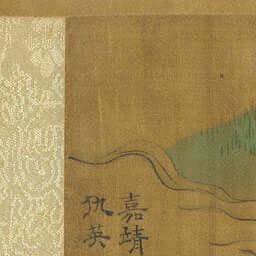 嘉靖
仇英